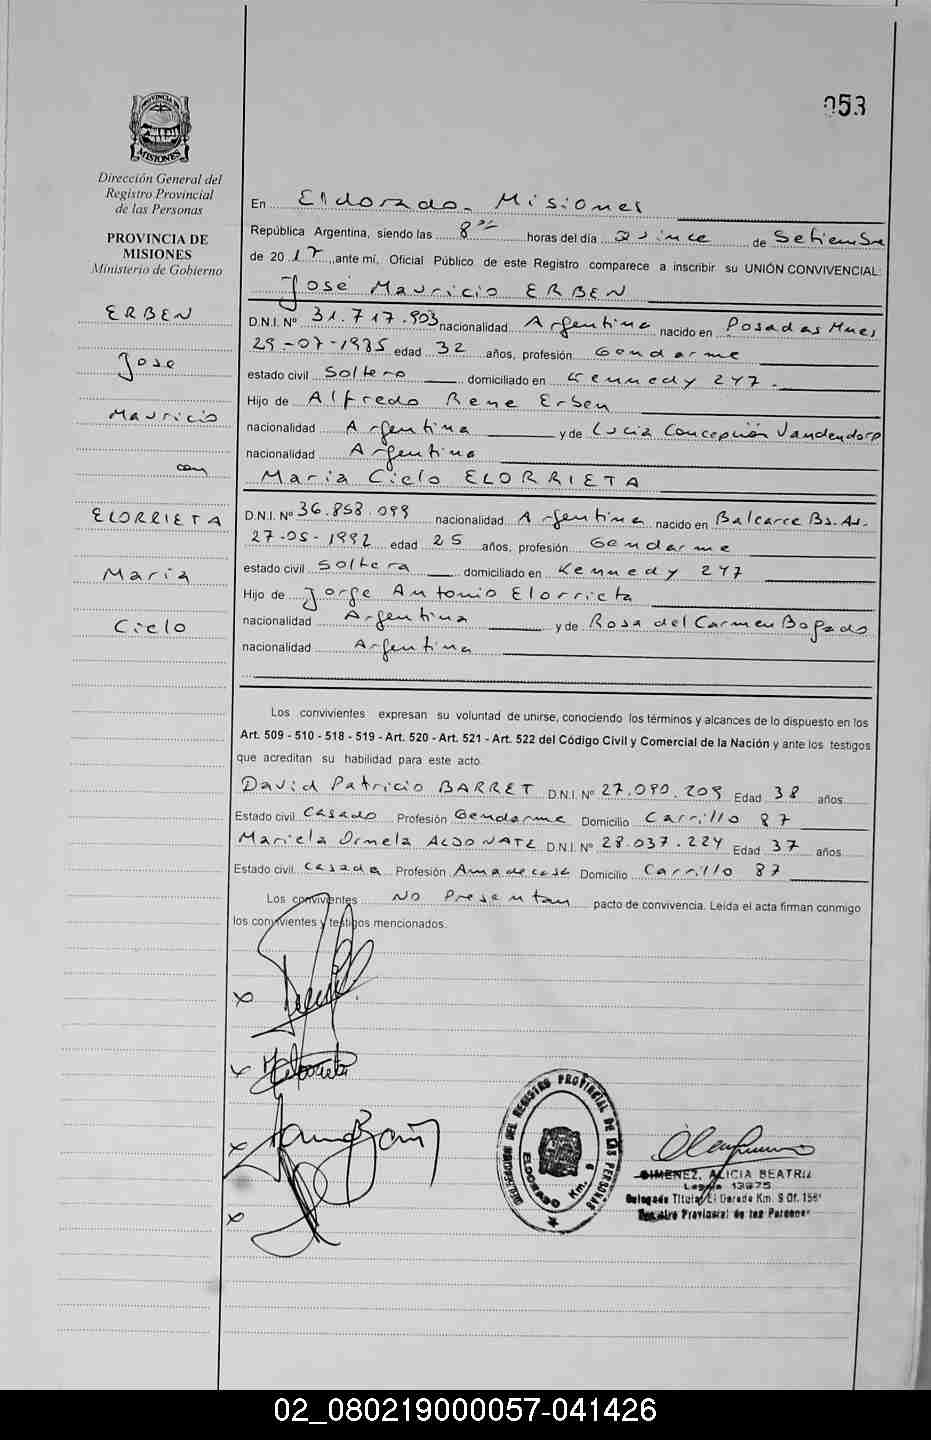 053
PROVINCIA DE
MISIONES
Dirección General del
Registro Provincial
de las Personas
PROVINCIA DE
MISIONES
Ministerio de Gobierno
ERBEN
Jose
Mauricio
con
ELORRIETA
Maria
Cielo
En Eldorado - Misiones
República Argentina, siendo las 8 horas del día Quince de Setiembre
de 2017, ante mí, Oficial Público de este Registro comparece a inscribir su UNIÓN CONVIVENCIAL:
José Mauricio ERBEN
D.N.I. Nº 31.717.903 nacionalidad Argentina nacido en Posadas Mnes
29-07-1985 edad 32 años, profesión Gendarme
estado civil Soltero domiciliado en Kennedy 247.
Hijo de Alfredo Rene Erben
nacionalidad Argentina y de Lucia Concepción Vandendorp
nacionalidad Argentina
Maria Cielo ELORRIETA
D.N.I. Nº 36.858.099 nacionalidad Argentina nacido en Balcarce Bs. As.
27-05-1992 edad 25 años, profesión Gendarme
estado civil Soltera domiciliado en Kennedy 247
Hijo de Jorge Antonio Elorrieta
nacionalidad Argentina y de Rosa del Carmen Bogado
nacionalidad Argentina
Los convivientes expresan su voluntad de unirse, conociendo los términos y alcances de lo dispuesto en los
Art. 509 - 510 - 518 - 519 - Art. 520 - Art. 521 - Art. 522 del Código Civil y Comercial de la Nación y ante los testigos
que acreditan su habilidad para este acto.
David Patricio BARRET D.N.I. Nº 27.090.209 Edad 38 años
Estado civil Casado Profesión Gendarme Domicilio Carrillo 87
Mariela Ornela ALDONATE D.N.I. Nº 28.037.224 Edad 37 años
Estado civil Casada Profesión Ama de casa Domicilio Carrillo 87
Los convivientes No Presentan pacto de convivencia. Leída el acta firman conmigo
los convivientes y testigos mencionados.
DEL REGISTRO PROVINCIAL DE LAS PERSONAS
ELDORADO Km. 9
GIMENEZ, ALICIA BEATRIZ
Delegada Titular El Dorado Km. 9 Of.
Registro Provincial de las Personas
02_080219000057-041426